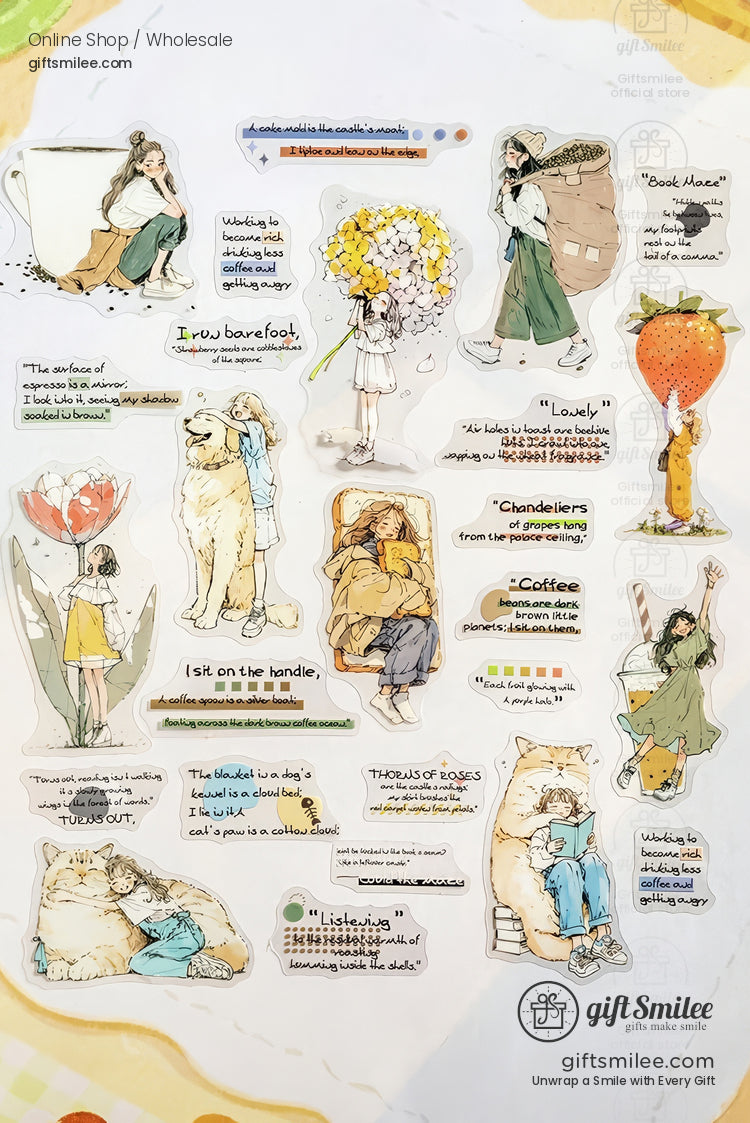 Online Shop / Wholesale
giftsmilee.com
gift Smilee
Giftsmilee
official store
A cake mold is the castle's moat;
I tiptoe and lean on the edge.
"Book Maze"
"Hidden paths
lie between lines,
my footprints
rest on the
tail of a comma."
Working to
become rich
drinking less
coffee and
getting angry
I run barefoot,
"Strawberry seeds are cobblestones
of the square.
"The surface of
espresso is a mirror;
I look into it, seeing my shadow
soaked in brown."
"Lonely"
"Air holes in toast are beehive
"Chandeliers
of grapes hang
from the palace ceiling,"
"Coffee
beans are dark
brown little
planets; I sit on them,
I sit on the handle,
A coffee spoon is a silver boat;
floating across the dark brown coffee ocean."
"Each fruit glowing with
a purple halo."
"Turns out, reading isn't walking
it is slowly growing
wings in the forest of words."
TURNS OUT,
The blanket in a dog's
kennel is a cloud bed;
I lie in it,
cat's paw is a cotton cloud;
THORNS OF ROSES
are the castle's railings;
my skirt brushes the
red carpet woven from petals."
could the maze
"Listening"
to the residual warmth of
roasting
humming inside the shells."
Working to
become rich
drinking less
coffee and
getting angry
gift Smilee
gifts make smile
giftsmilee.com
Unwrap a Smile with Every Gift